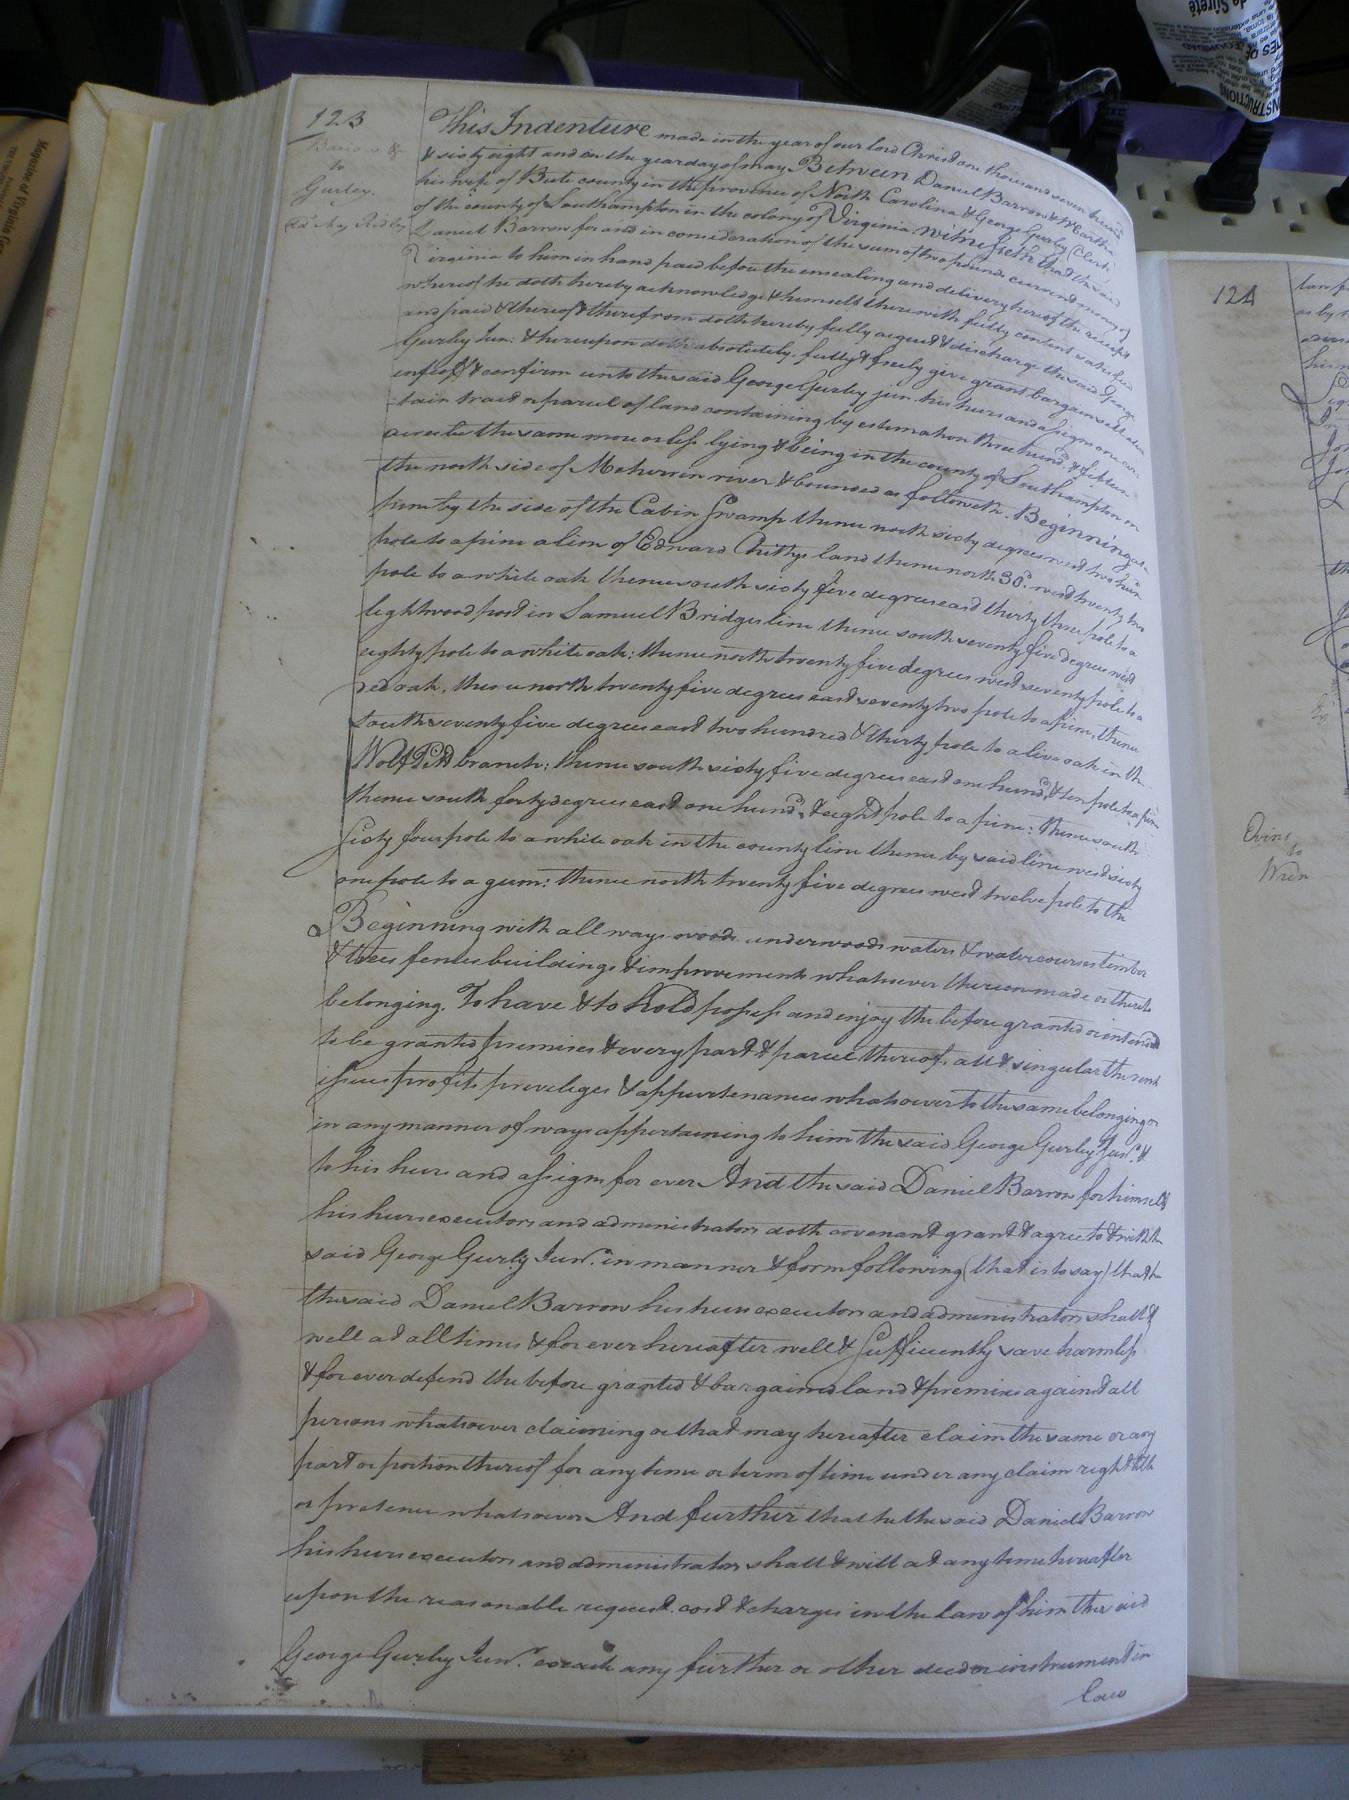 123
Barrow &
to
Gurley.
This Indenture made in the year of our lord Christ one thousand seven hundred
& sixty eight and on the year day of may Between Daniel Barrow & Martha
his wife of Bute county in the province of North Carolina & George Gurley (Clerk
of the county of Southampton in the colony of Virginia witnesseth that the said
Daniel Barrow for and in consideration of the sum of two pounds current money of
Virginia to him in hand paid before the ensealing and delivery hereof the receipt
whereof he doth hereby acknowledge & himself therewith fully content satisfied
and paid & thereof & therefrom doth hereby fully acquit & discharge the said George
Gurley Jun: & hereupon doth absolutely. fully & freely give grant bargain sell alien
infeoff & confirm unto the said George Gurley jun. his heirs and assigns one cer-
tain tract or parcel of land containing by estimation three hund. & fifteen
acres be the same more or less lying & being in the county of Southampton on
the north side of Meherrin river & bounded as followeth. Beginning at a
pine by the side of the Cabin Swamp thence north sixty degrees west two hun
pole to a pine a line of Edward Chittys land thence north 30d. west twenty two
pole to a white oak thence south sixty five degrees east thirty three pole to a
lightwood post in Samuel Bridges line thence south seventy five degrees west
eighty pole to a white oak: thence north twenty five degrees west seventy pole to a
red oak, thence north twenty five degrees east seventy two pole to a pine, thence
south seventy five degrees east two hundred & thirty pole to a live oak in the
Wolf Pit branch: thence south sixty five degrees east one hund.d & ten pole to a pine
thence south forty degrees east one hund.d & eight pole to a pine: thence south
Sixty four pole to a white oak in the county line thence by said line west sixty
one pole to a gum: thence north twenty five degrees west twelve pole to the
Beginning with all ways woods underwoods waters & watercourses timber
& trees fences buildings & improvements whatsoever thereon made or thereto
belonging. To have & to hold possess and enjoy the before granted or intended
to be granted premises & every part & parcel thereof, all & singular the rents
issues profits priveleges & appurtenances whatsoever to the same belonging or
in any manner of ways appertaining to him the said George Gurley Jun.r &
to his heirs and assigns for ever And the said Daniel Barrow for himself
his heirs executors and administrators doth covenant grant & agree to & with the
said George Gurley Jun.r in manner & form following (that is to say) that he
the said Daniel Barrow his heirs executors and administrators shall &
well at all times & for ever hereafter well & Sufficiently save harmless
& for ever defend the before granted & bargained land & premises against all
persons whatsoever claiming or that may hereafter claim the same or any
part or portion thereof for any time or term of time under any claim right title
or pretence whatsoever And further that he the said Daniel Barrow
his heirs executors and administrators shall & will at any time hereafter
upon the reasonable request. cost & charges in the law of him the said
George Gurley Jun.r execute any further or other deed or instrument in
law
124
to
Wren
Magazine of Virginia
INSTRUCTIONS